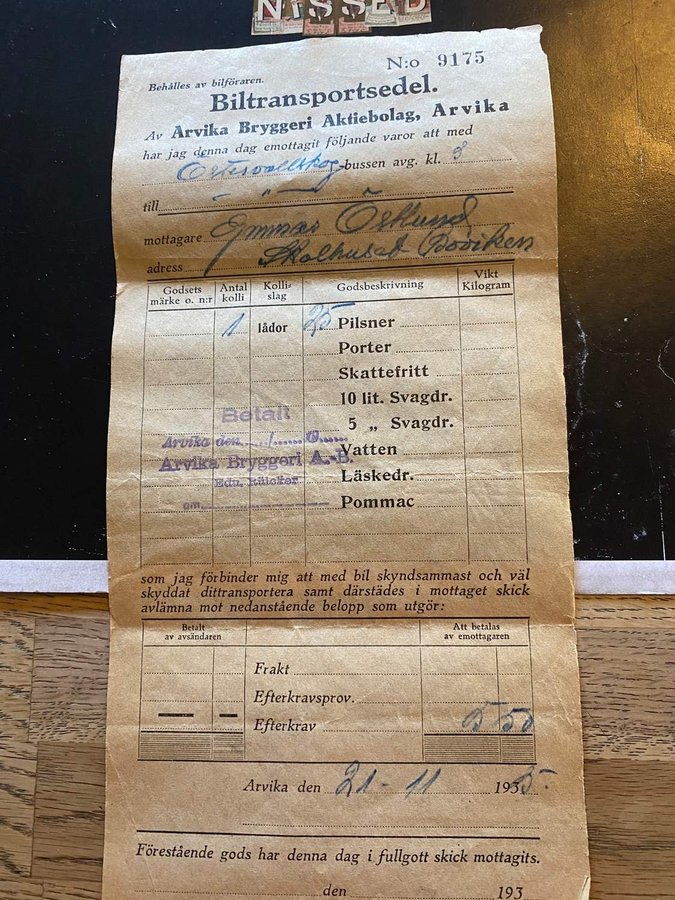 NISSED
N:o 9175
Behålles av bilföraren.
Biltransportsedel.
Av Arvika Bryggeri Aktiebolag, Arvika
har jag denna dag emottagit följande varor att med
Östervallskog-bussen avg. kl. 3
till
mottagare Östlund
adress Skolhuset
Godsets märke o. n:r Antal kolli Kolli-slag Godsbeskrivning Vikt Kilogram
1 lådor 25 Pilsner
Porter
Skattefritt
10 lit. Svagdr.
5 „ Svagdr.
Vatten
Läskedr.
Pommac
Betalt
Arvika den
Arvika Bryggeri A.-B.
som jag förbinder mig att med bil skyndsammast och väl
skyddat dittransportera samt därstädes i mottaget skick
avlämna mot nedanstående belopp som utgör:
Betalt av avsändaren Att betalas av emottagaren
Frakt
Efterkravsprov.
Efterkrav 5 50
Arvika den 21 - 11 1935.
Förestående gods har denna dag i fullgott skick mottagits.
den 193